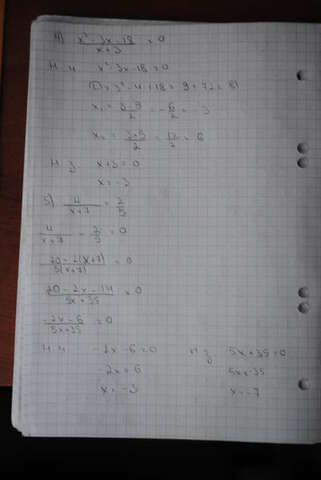 4) (x² - 3x - 18)/(x + 3) = 0
Н.ч. x² - 3x - 18 = 0
D = 3² - 4·18 = 9 + 72 = 81
x₁ = (3 - 9)/2 = -6/2 = -3
x₂ = (3 + 9)/2 = 12/2 = 6
Н.з. x + 3 = 0
x = -3
5) 4/(x + 7) = 2/5
4/(x + 7) - 2/5 = 0
(20 - 2(x + 7))/(5(x + 7)) = 0
(20 - 2x - 14)/(5x + 35) = 0
(-2x - 6)/(5x + 35) = 0
Н.ч. -2x - 6 = 0 Н.з. 5x + 35 = 0
-2x = 6 5x = -35
x = -3 x = -7